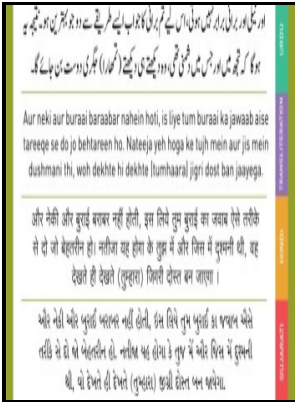 اور نیکی اور برائی برابر نہیں ہوتی، اس لیے تم برائی کا جواب ایسے طریقے سے دو جو بہترین ہو۔ نتیجہ یہ
ہوگا کہ تجھ میں اور جس میں دشمنی تھی، وہ دیکھتے ہی دیکھتے (تمھارا) جگری دوست بن جائے گا۔
Aur neki aur buraai baraabar nahein hoti, is liye tum buraai ka jawaab aise
tareeqe se do jo behtareen ho. Nateeja yeh hoga ke tujh mein aur jis mein
dushmani thi, woh dekhte hi dekhte [tumhaara] jigri dost ban jaayega.
और नेकी और बुराई बराबर नहीं होती, इस लिये तुम बुराई का जवाब ऐसे तरीके
से दो जो बेहतरीन हो। नतीजा यह होगा के तुझ में और जिस में दुश्मनी थी, वह
देखते ही देखते (तुम्हारा) जिगरी दोस्त बन जाएगा ।
ઔર નેકી ઔર બુરાઈ બરાબર નહીં હોતી, ઇસ લિયે તુમ બુરાઈ કા જવાબ ઐસે
તરીકે સે દો જો બેહતરીન હો. નતીજા યહ હોગા કે તુજ મેં ઔર જિસ મેં દુશ્મની
થી, વો દેખતે હી દેખતે (તુમ્હારા) જીગ્રી દોસ્ત બન જાયેગા.
URDU
TRANSLITERATION
HINDI
GUJARATI